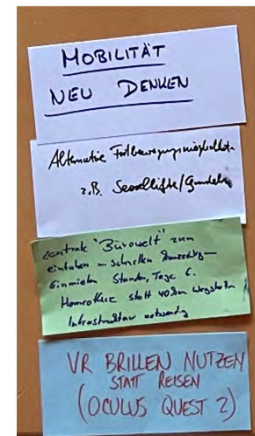 MOBILITÄT
NEU DENKEN
Alternative Fortbewegungsmöglichk.
z.B. Sessellifte/Gondeln
zentrale "Bürowelt" zum
einmieten Stunden, Tage
Homeoffice statt 40km Wegstrecke
Infrastruktur notwendig
VR BRILLEN NUTZEN
STATT REISEN
(OCULUS QUEST 2)